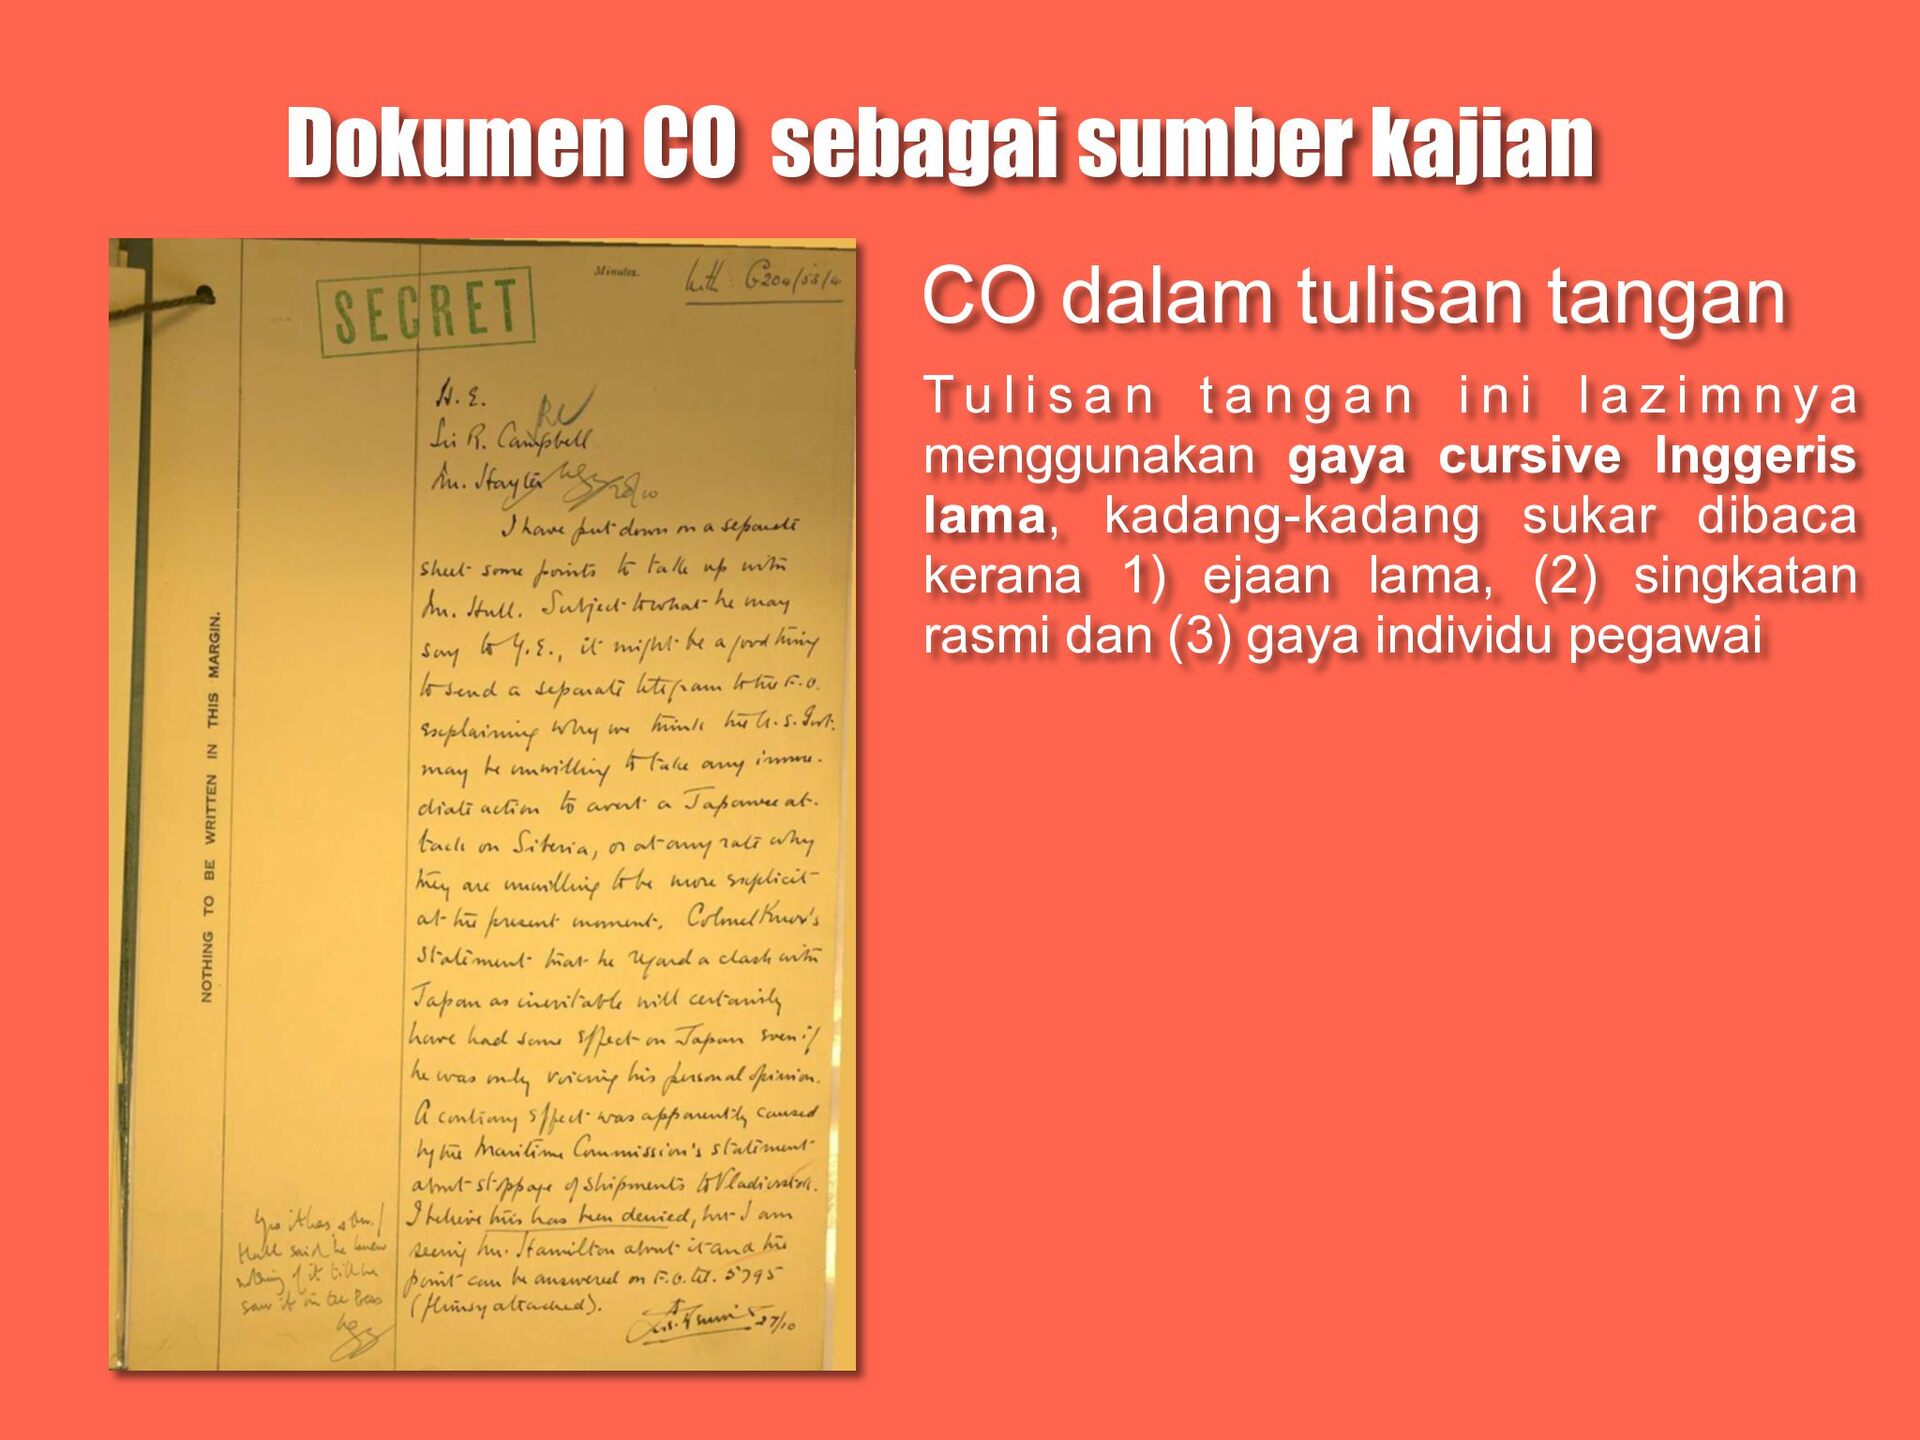 Dokumen CO sebagai sumber kajian
Minutes.
G204/53/4
SECRET
H.E.
Sir R. Campbell
Mr. Hayter
I have put down on a separate
sheet some points to take up with
Mr. Hull. Subject to what he may
say to Y.E., it might be a good thing
to send a separate telegram to the F.O.
explaining why we think the U.S. Govt.
may be unwilling to take any imme-
diate action to avert a Japanese at-
tack on Siberia, or at any rate why
they are unwilling to be more explicit
at the present moment. Colonel Knox's
statement that he regard a clash with
Japan as inevitable will certainly
have had some effect on Japan even if
he was only voicing his personal opinion.
A contrary effect was apparently caused
by the Maritime Commission's statement
about stoppage of shipments to Vladivostok.
I believe this has been denied, but I am
seeing Mr. Hamilton about it and the
point can be answered on F.O. tel. 5795
(flimsy attached).
27/10
Yes it has been /
Hull said he knew
nothing of it till he
saw it in the
NOTHING TO BE WRITTEN IN THIS MARGIN.
CO dalam tulisan tangan
Tulisan tangan ini lazimnya
menggunakan gaya cursive Inggeris
lama, kadang-kadang sukar dibaca
kerana 1) ejaan lama, (2) singkatan
rasmi dan (3) gaya individu pegawai